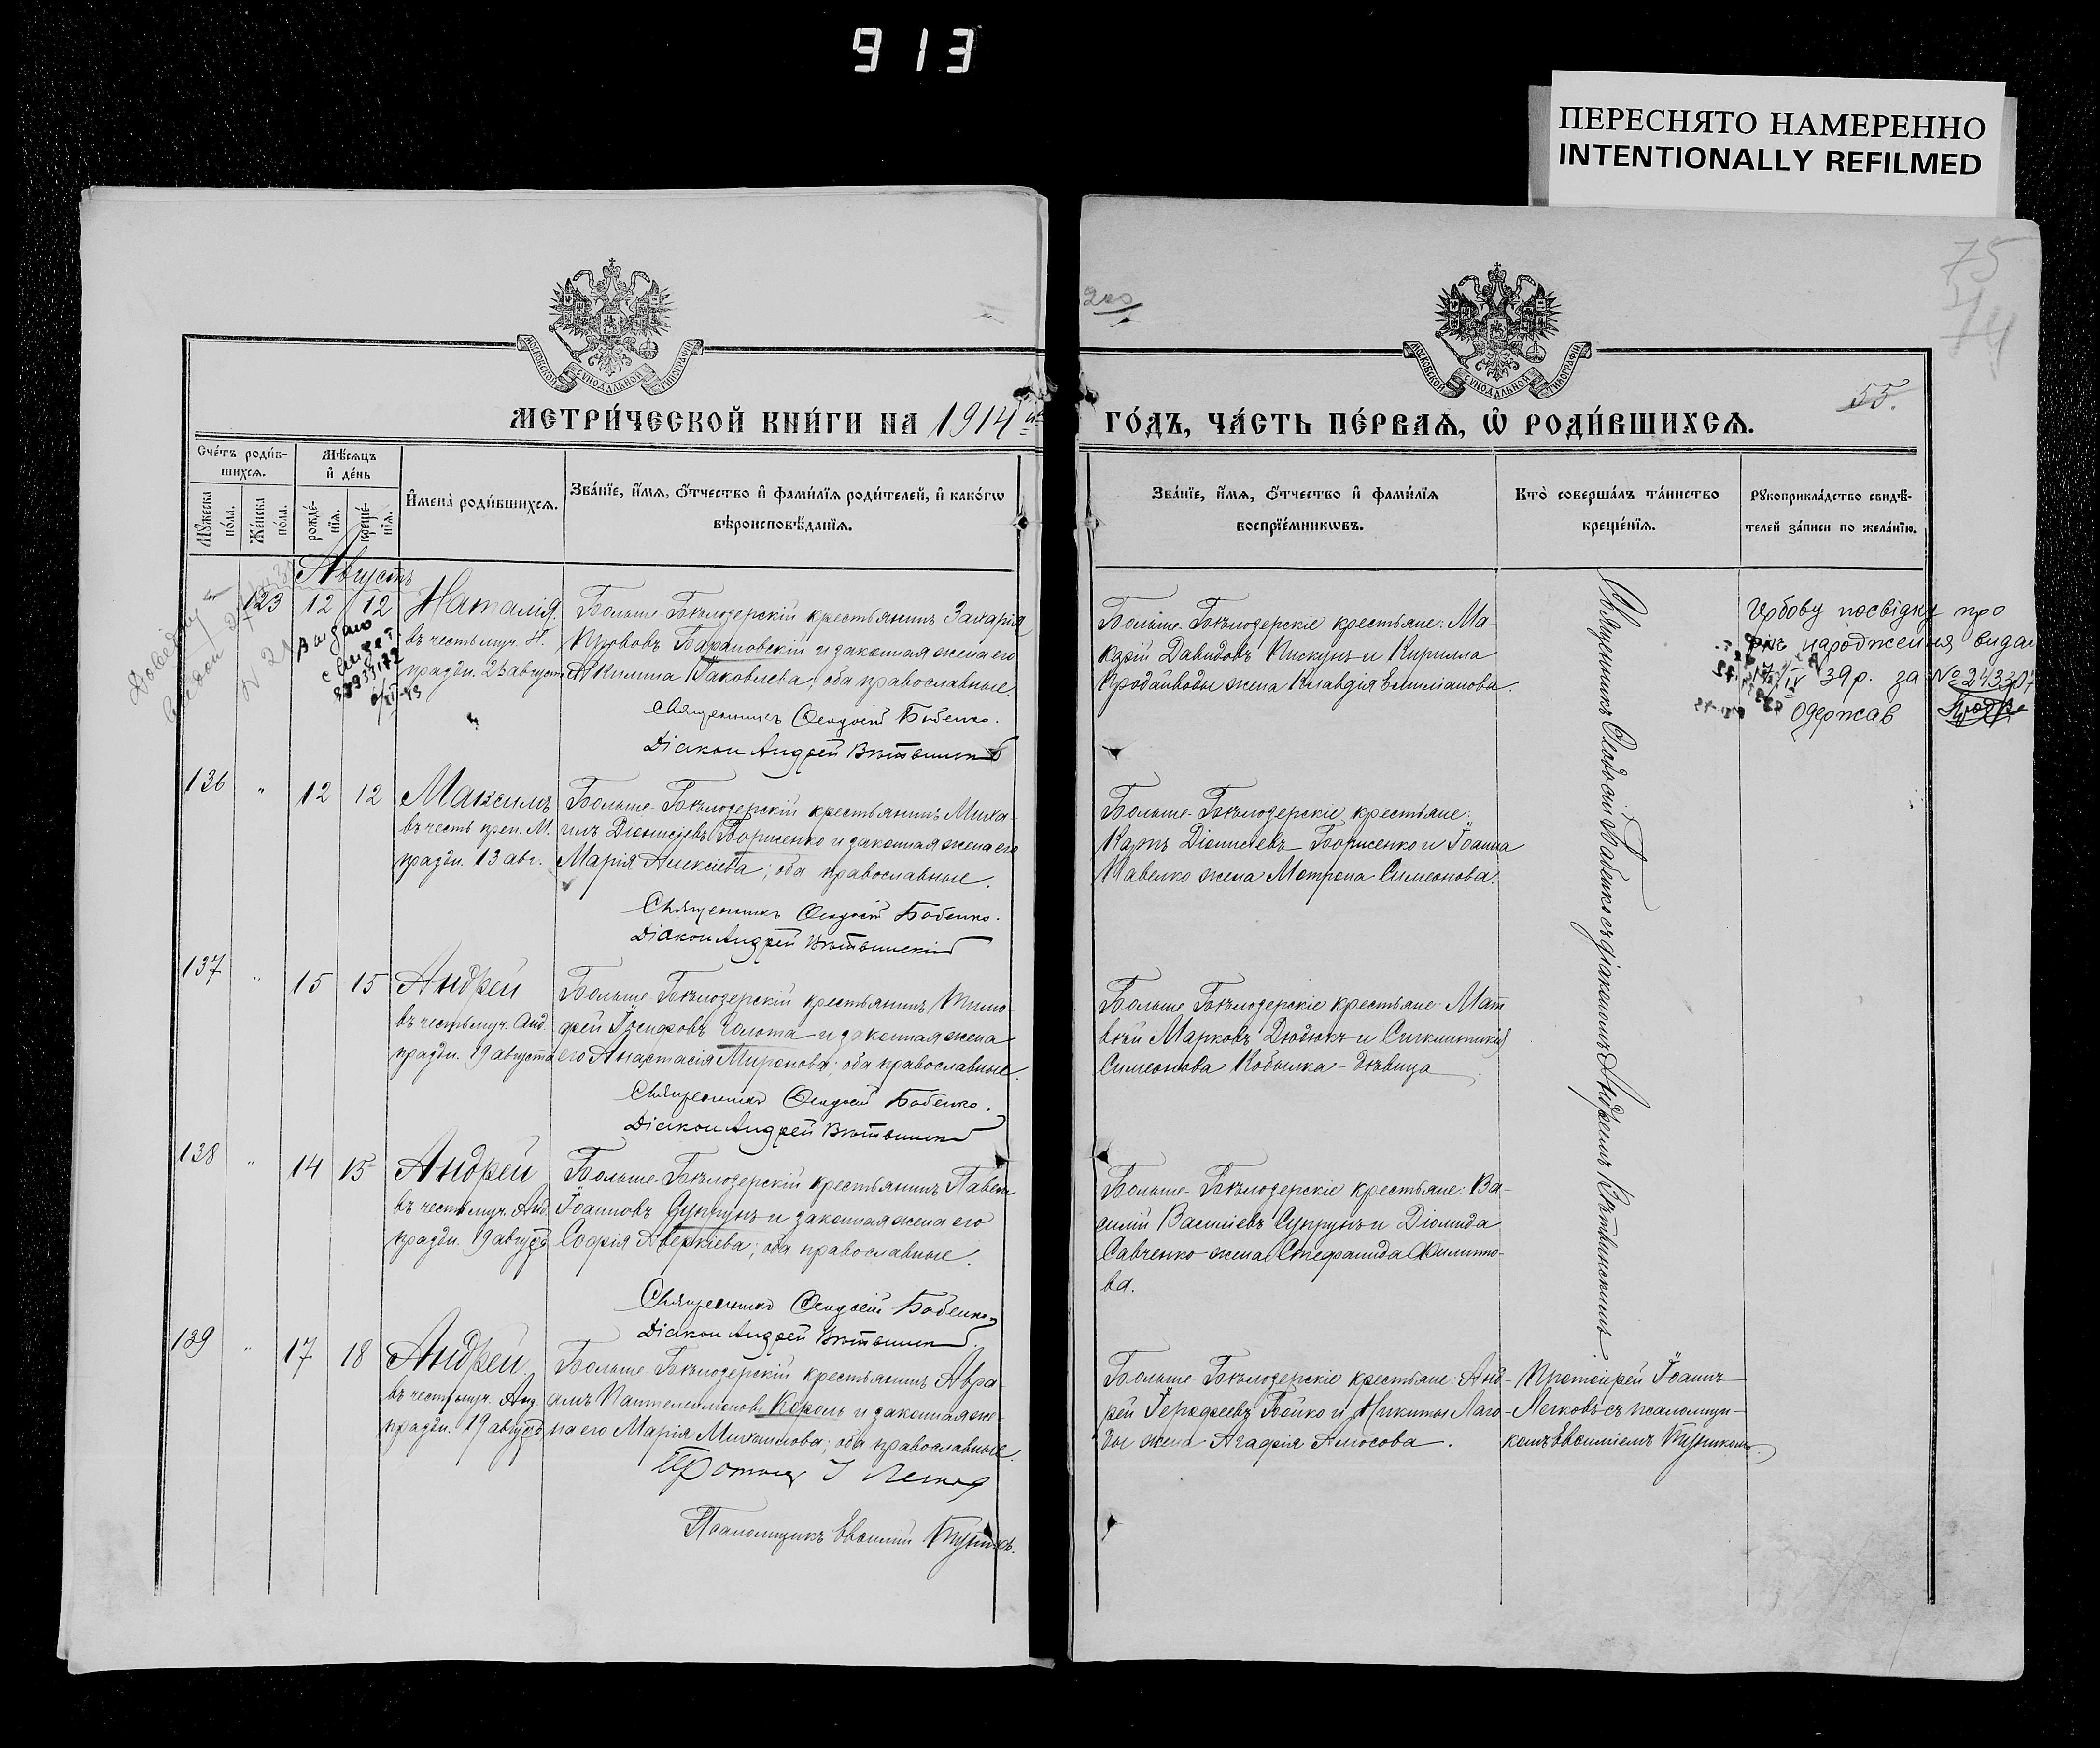 913
ПЕРЕСНЯТО НАМЕРЕННО
INTENTIONALLY REFILMED
75
74
200
55.
МОСКОВСКОЙ СѴНОДАЛЬНОЙ ТИПОГРАФІИ
МОСКОВСКОЙ СѴНОДАЛЬНОЙ ТИПОГРАФІИ
МЕТРИ́ЧЕСКОЙ КНИ́ГИ НА 1914 й
ГО́ДЪ, ЧА́СТЬ ПЕ́РВАѦ, Ѡ҆ РОДИ́ВШИХСѦ.
Сче́тъ роди́в-
шихсѧ.
Мѣ́сѧцъ
и҆ де́нь
Мꙋ́жеска
по́ла.
Же́нска
по́ла.
рожде́-
нїѧ.
креще́-
нїѧ.
И҆мена̀ роди́вшихсѧ.
Зва́нїе, и҆́мѧ, ѻ҆́тчество и҆ фами́лїѧ роди́телей, и҆ како́гѡ
вѣроисповѣ́данїѧ.
Зва́нїе, и҆́мѧ, ѻ҆́тчество и҆ фами́лїѧ
воспрїе́мникѡвъ.
Кто̀ соверша́лъ та́инство
креще́нїѧ.
Рꙋкоприкла́дство свидѣ́-
телей за́писи по жела́нїю.
Августъ
123 12 12 Наталія
въ честь муч. Н.
праздн. 23 августа
Больше-Бѣлозерскій крестьянинъ Захарія
Барановскій и законная жена его
Акилина Іаковлева; оба православные.
Священникъ Ѳеодосій Бабенко.
Діаконъ Андрей Вѣтвинскій
Больше-Бѣлозерскіе крестьяне: Ма-
карій Давидовъ Пискунъ и Кирилла
Продайводы жена Клавдія Емиліанова.
Священникъ Ѳеодосій Бабенко съ діакономъ Андреемъ Вѣтвинскимъ.
посвідку про
народження видан
39р. за №
Одержав
136 " 12 12 Максимъ
въ честь преп. М.
праздн. 13 авг.
Больше-Бѣлозерскій крестьянинъ Миха-
илъ Діонисіевъ Борисенко и законная жена его
Марія Алексіева; оба православные.
Священникъ Ѳеодосій Бабенко.
Діаконъ Андрей Вѣтвинскій
Больше-Бѣлозерскіе крестьяне:
Карпъ Діонисіевъ Борисенко и Іоанна
Павелко жена Мотрона Симеонова.
137 " 15 15 Андрей
въ честь муч. Анд.
праздн. 19 августа
Больше-Бѣлозерскій крестьянинъ Тимо-
фей Іосифовъ Золота и законная жена
его Анастасія Миронова; оба православные.
Священникъ Ѳеодосій Бабенко.
Діаконъ Андрей Вѣтвинскій
Больше-Бѣлозерскіе крестьяне: Мат
вѣй Марковъ Дюдюкъ и Сигклитикія
Симеонова Кобылка - дѣвица.
138 " 14 15 Андрей
въ честь муч. Анд.
праздн. 19 августа
Больше-Бѣлозерскій крестьянинъ Павелъ
Іоанновъ Супрунъ и законная жена его
Софія Аверкіева; оба православные.
Священникъ Ѳеодосій Бабенко.
Діаконъ Андрей Вѣтвинскій.
Больше-Бѣлозерскіе крестьяне: Ва-
силій Василіевъ Супрунъ и Діомида
Савченко жена Стефанида Филиппо-
ва.
139 " 17 18 Андрей
въ честь муч. Анд.
праздн. 19 августа
Больше-Бѣлозерскій крестьянинъ Авра-
амъ Пантелеимоновъ Король и законная же-
на его Марія Михаилова; оба православные.
Протоіер І Легков
Псаломщикъ Евѳимій Тупиковъ.
Больше-Бѣлозерскіе крестьяне: Анд-
рей Бойко и Никиты Лаго-
ды жена Агафія Амосова.
Протоіерей Іоаннъ
Легковъ съ псаломщи-
комъ Евѳиміемъ